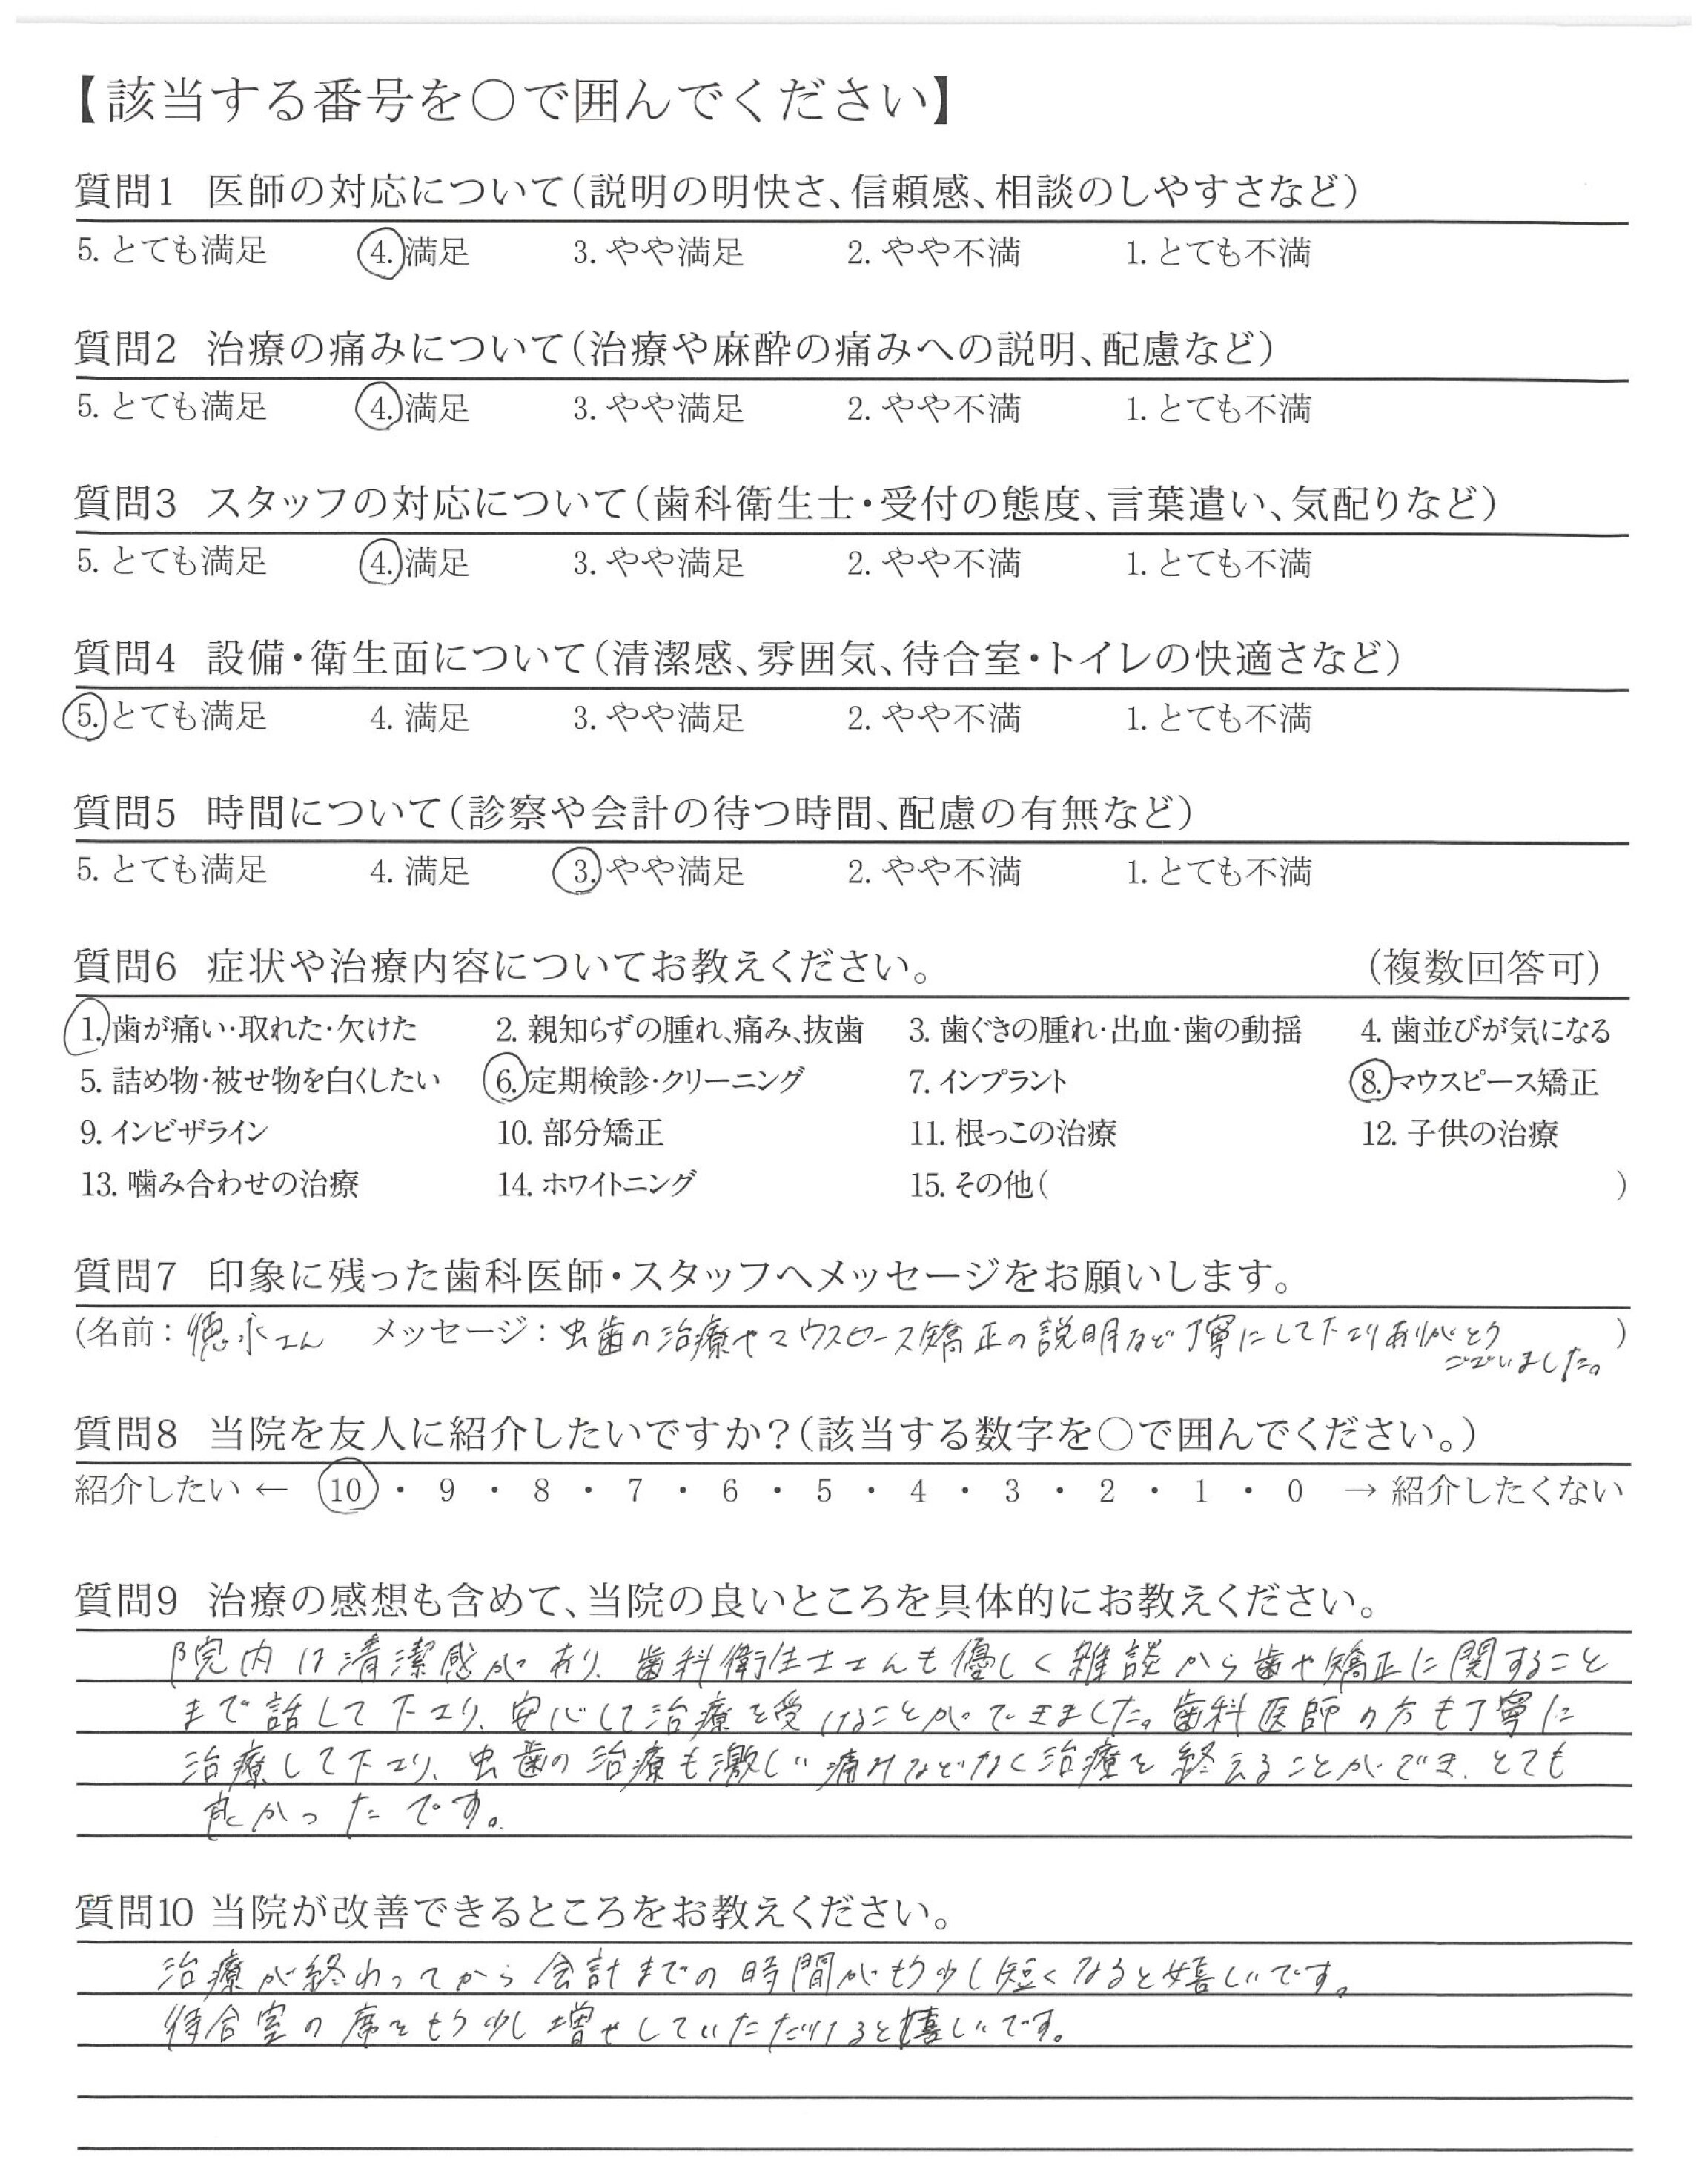 【該当する番号を〇で囲んでください】
質問1 医師の対応について(説明の明快さ、信頼感、相談のしやすさなど)
5. とても満足 4. 満足 3. やや満足 2. やや不満 1. とても不満
質問2 治療の痛みについて(治療や麻酔の痛みへの説明、配慮など)
5. とても満足 4. 満足 3. やや満足 2. やや不満 1. とても不満
質問3 スタッフの対応について(歯科衛生士・受付の態度、言葉遣い、気配りなど)
5. とても満足 4. 満足 3. やや満足 2. やや不満 1. とても不満
質問4 設備・衛生面について(清潔感、雰囲気、待合室・トイレの快適さなど)
5. とても満足 4. 満足 3. やや満足 2. やや不満 1. とても不満
質問5 時間について(診察や会計の待つ時間、配慮の有無など)
5. とても満足 4. 満足 3. やや満足 2. やや不満 1. とても不満
質問6 症状や治療内容についてお教えください。 (複数回答可)
1. 歯が痛い・取れた・欠けた 2. 親知らずの腫れ、痛み、抜歯 3. 歯ぐきの腫れ・出血・歯の動揺 4. 歯並びが気になる
5. 詰め物・被せ物を白くしたい 6. 定期検診・クリーニング 7. インプラント 8. マウスピース矯正
9. インビザライン 10. 部分矯正 11. 根っこの治療 12. 子供の治療
13. 噛み合わせの治療 14. ホワイトニング 15. その他( )
質問7 印象に残った歯科医師・スタッフへメッセージをお願いします。
(名前: 徳永さん メッセージ: 虫歯の治療やマウスピース矯正の説明など丁寧にして下さりありがとう )
ございました。
質問8 当院を友人に紹介したいですか?(該当する数字を〇で囲んでください。)
紹介したい ← 10 ・ 9 ・ 8 ・ 7 ・ 6 ・ 5 ・ 4 ・ 3 ・ 2 ・ 1 ・ 0 → 紹介したくない
質問9 治療の感想も含めて、当院の良いところを具体的にお教えください。
院内は清潔感があり、歯科衛生士さんも優しく雑談から歯や矯正に関すること
まで話して下さり、安心して治療を受けることができました。歯科医師の方も丁寧に
治療して下さり、虫歯の治療も激しい痛みなどなく治療を終えることができ、とても
良かったです。
質問10 当院が改善できるところをお教えください。
治療が終わってから会計までの時間がもう少し短くなると嬉しいです。
待合室の席をもう少し増やしていただけると嬉しいです。